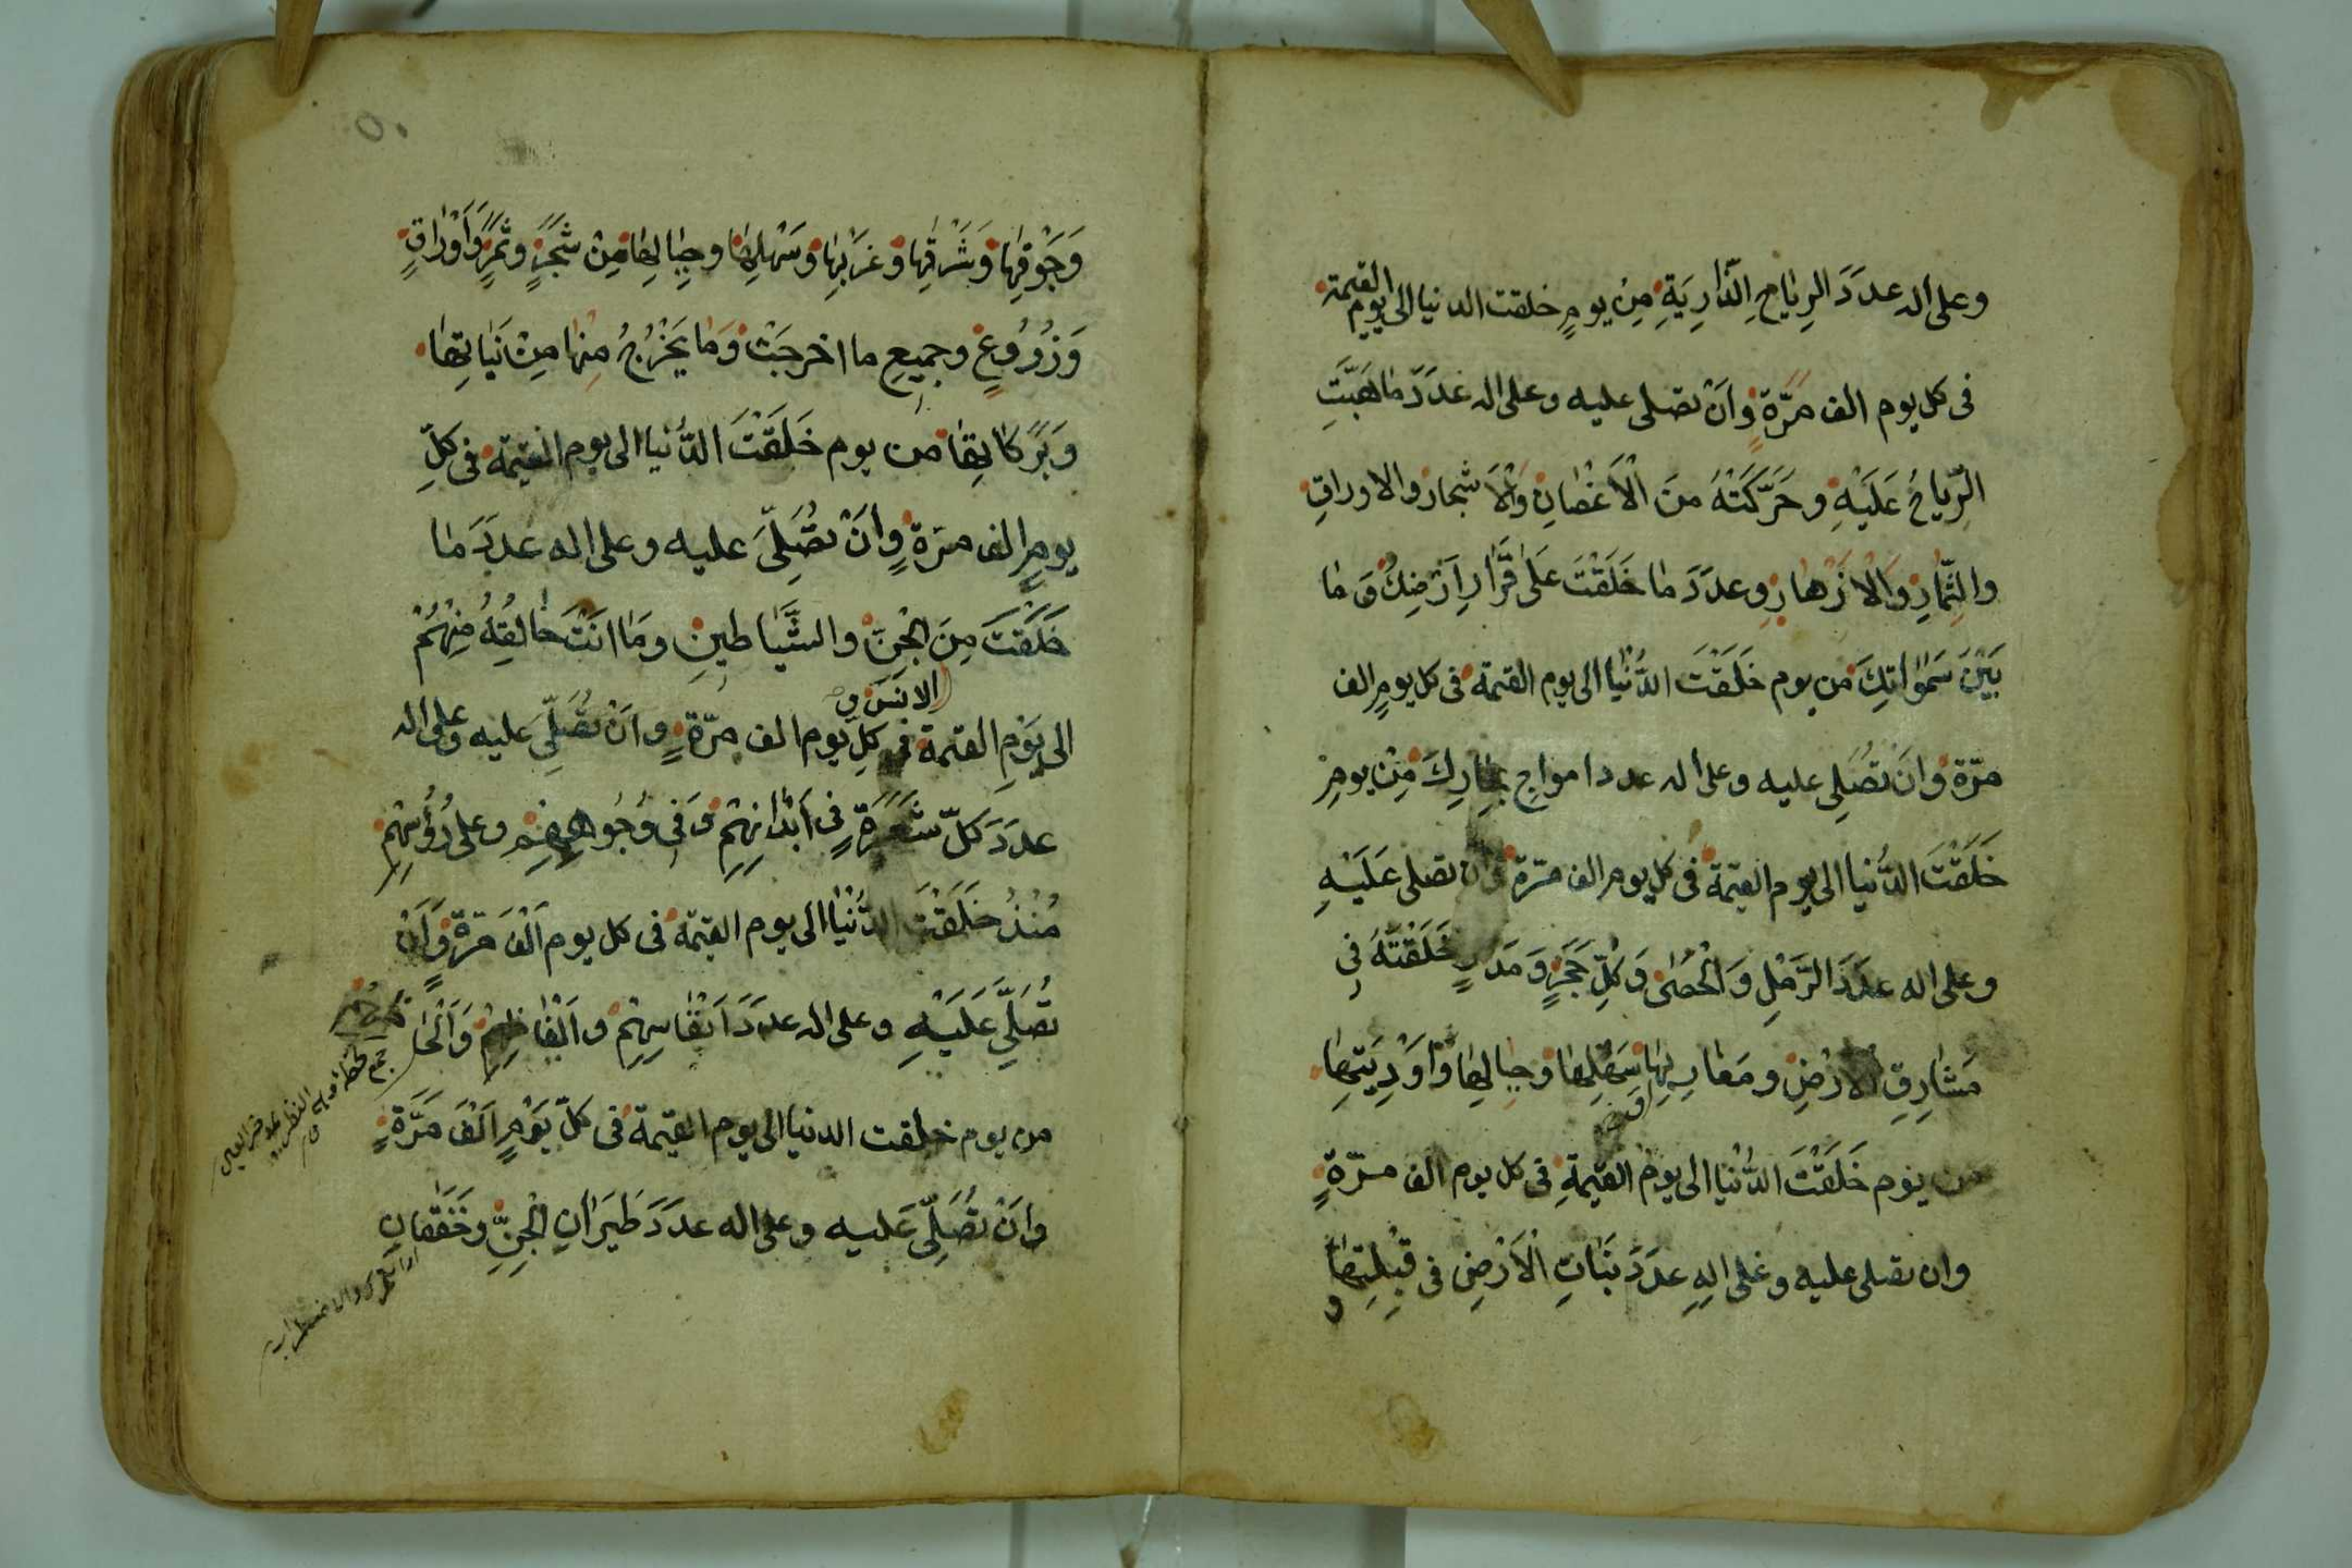 وعلى اله عدَدَ الرِيَاحِ الذَّارِيَةِ مِنْ يومٍ خلقت الدنيا الى يوم القيمة
فى كل يوم الف مَرَّةٍ وَاَنْ تصَلى عليه وعلى اله عَدَدَ مَا هَبَّتِ
الرِّيَاحُ عَلَيْهِ وحَرَّكَتْهُ منَ الْاَغْصَانِ وَالْاَشجارِ والاوراقِ
والثِّمَارِ وَالْاَزْهَارِ وعدَدَ مَا خَلَقْتَ عَلَى قَرَارِ اَرْضِكَ وَمَا
بَيْنَ سَمٰوَاتِكَ من يوم خَلَقْتَ الدُّنْيَا الى يوم القيمة فى كل يومٍ الف
مرّة وَاَنْ تصَلى عليه وعلى اله عدد امواجِ بِحَارِكَ مِنْ يومِ
خَلَقْتَ الدُّنيا الى يوم القيمة فى كل يوم الف مرّة وَان تصلى عَلَيْهِ
وعلى اله عدَدَ الرَّمْلِ وَالْحَصٰى وَكُلِّ حَجَرٍ وَمَدَرٍ خَلَقْتَهُ فِى
مَشَارِقِ الْاَرْضِ ومَغَارِبِهَا سَهْلِهَا وَجِبَالِهَا وَاَوْدِيَتِهَا
من يوم خَلَقْتَ الدُّنْيَا الى يوم القيمةِ فى كل يوم الف مرّةٍ
وان تصلى عليه وعَلى الِهِ عدَدَ نَبَاتِ الْاَرْضِ فى قِبْلَتِهَا
و
وَجَوْفِهَا وَشَرْقِهَا وَغَرْبِهَا وَسَهْلِهَا وجِبَالِهَا مِنْ شَجَرٍ وثَمَرٍ وَاَوْرَاقٍ
وَزُرُوعٍ وجميعِ ما اخرجَتْ وَمَا يَخْرُجُ مِنْهَا مِنْ نَبَاتِهَا
وَبَرَكَاتِهَا من يوم خَلَقْتَ الدُّنيا الى يوم القيمة فى كلِّ
يومٍ الف مرّةٍ وَاَنْ تُصَلِّىَ عليه وعلى اله عدَدَ مَا
خَلَقْتَ مِنَ الْجِنِّ والشَّيَاطينِ ومَا اَنْتَ خَالِقُهُ مِنْهُمْ
الانس و
الى يَوْمِ القيمة فى كلِ يوم الف مرّةٍ وانْ تُصَلِّىَ عليه وعلى اله
عدَدَ كلّ شَعَرَةٍ فى اَبْدَانِهِمْ وَفى وُجُوههم وعلى رُؤُسِهِمْ
مُنْذُ خَلَقْتَ الدُّنْيَا الى يوم القيمة فى كل يوم اَلْفَ مَرّةٍ وَاَنْ
تُصَلِّىَ عَلَيْهِ وعلى اله عدَدَ اَنْفَاسِهِمْ واَلْفَاظِهِمْ وَاَلْحَاظِهِمْ
من يوم خلقت الدنيا الى يوم القيمة فى كلّ يَوْمٍ اَلْفَ مَرَّةٍ
وَانْ تُصَلِّىَ عَليه وعلى اله عدَدَ طَيَرَانِ الْجِنِّ وخَفَقَانِ